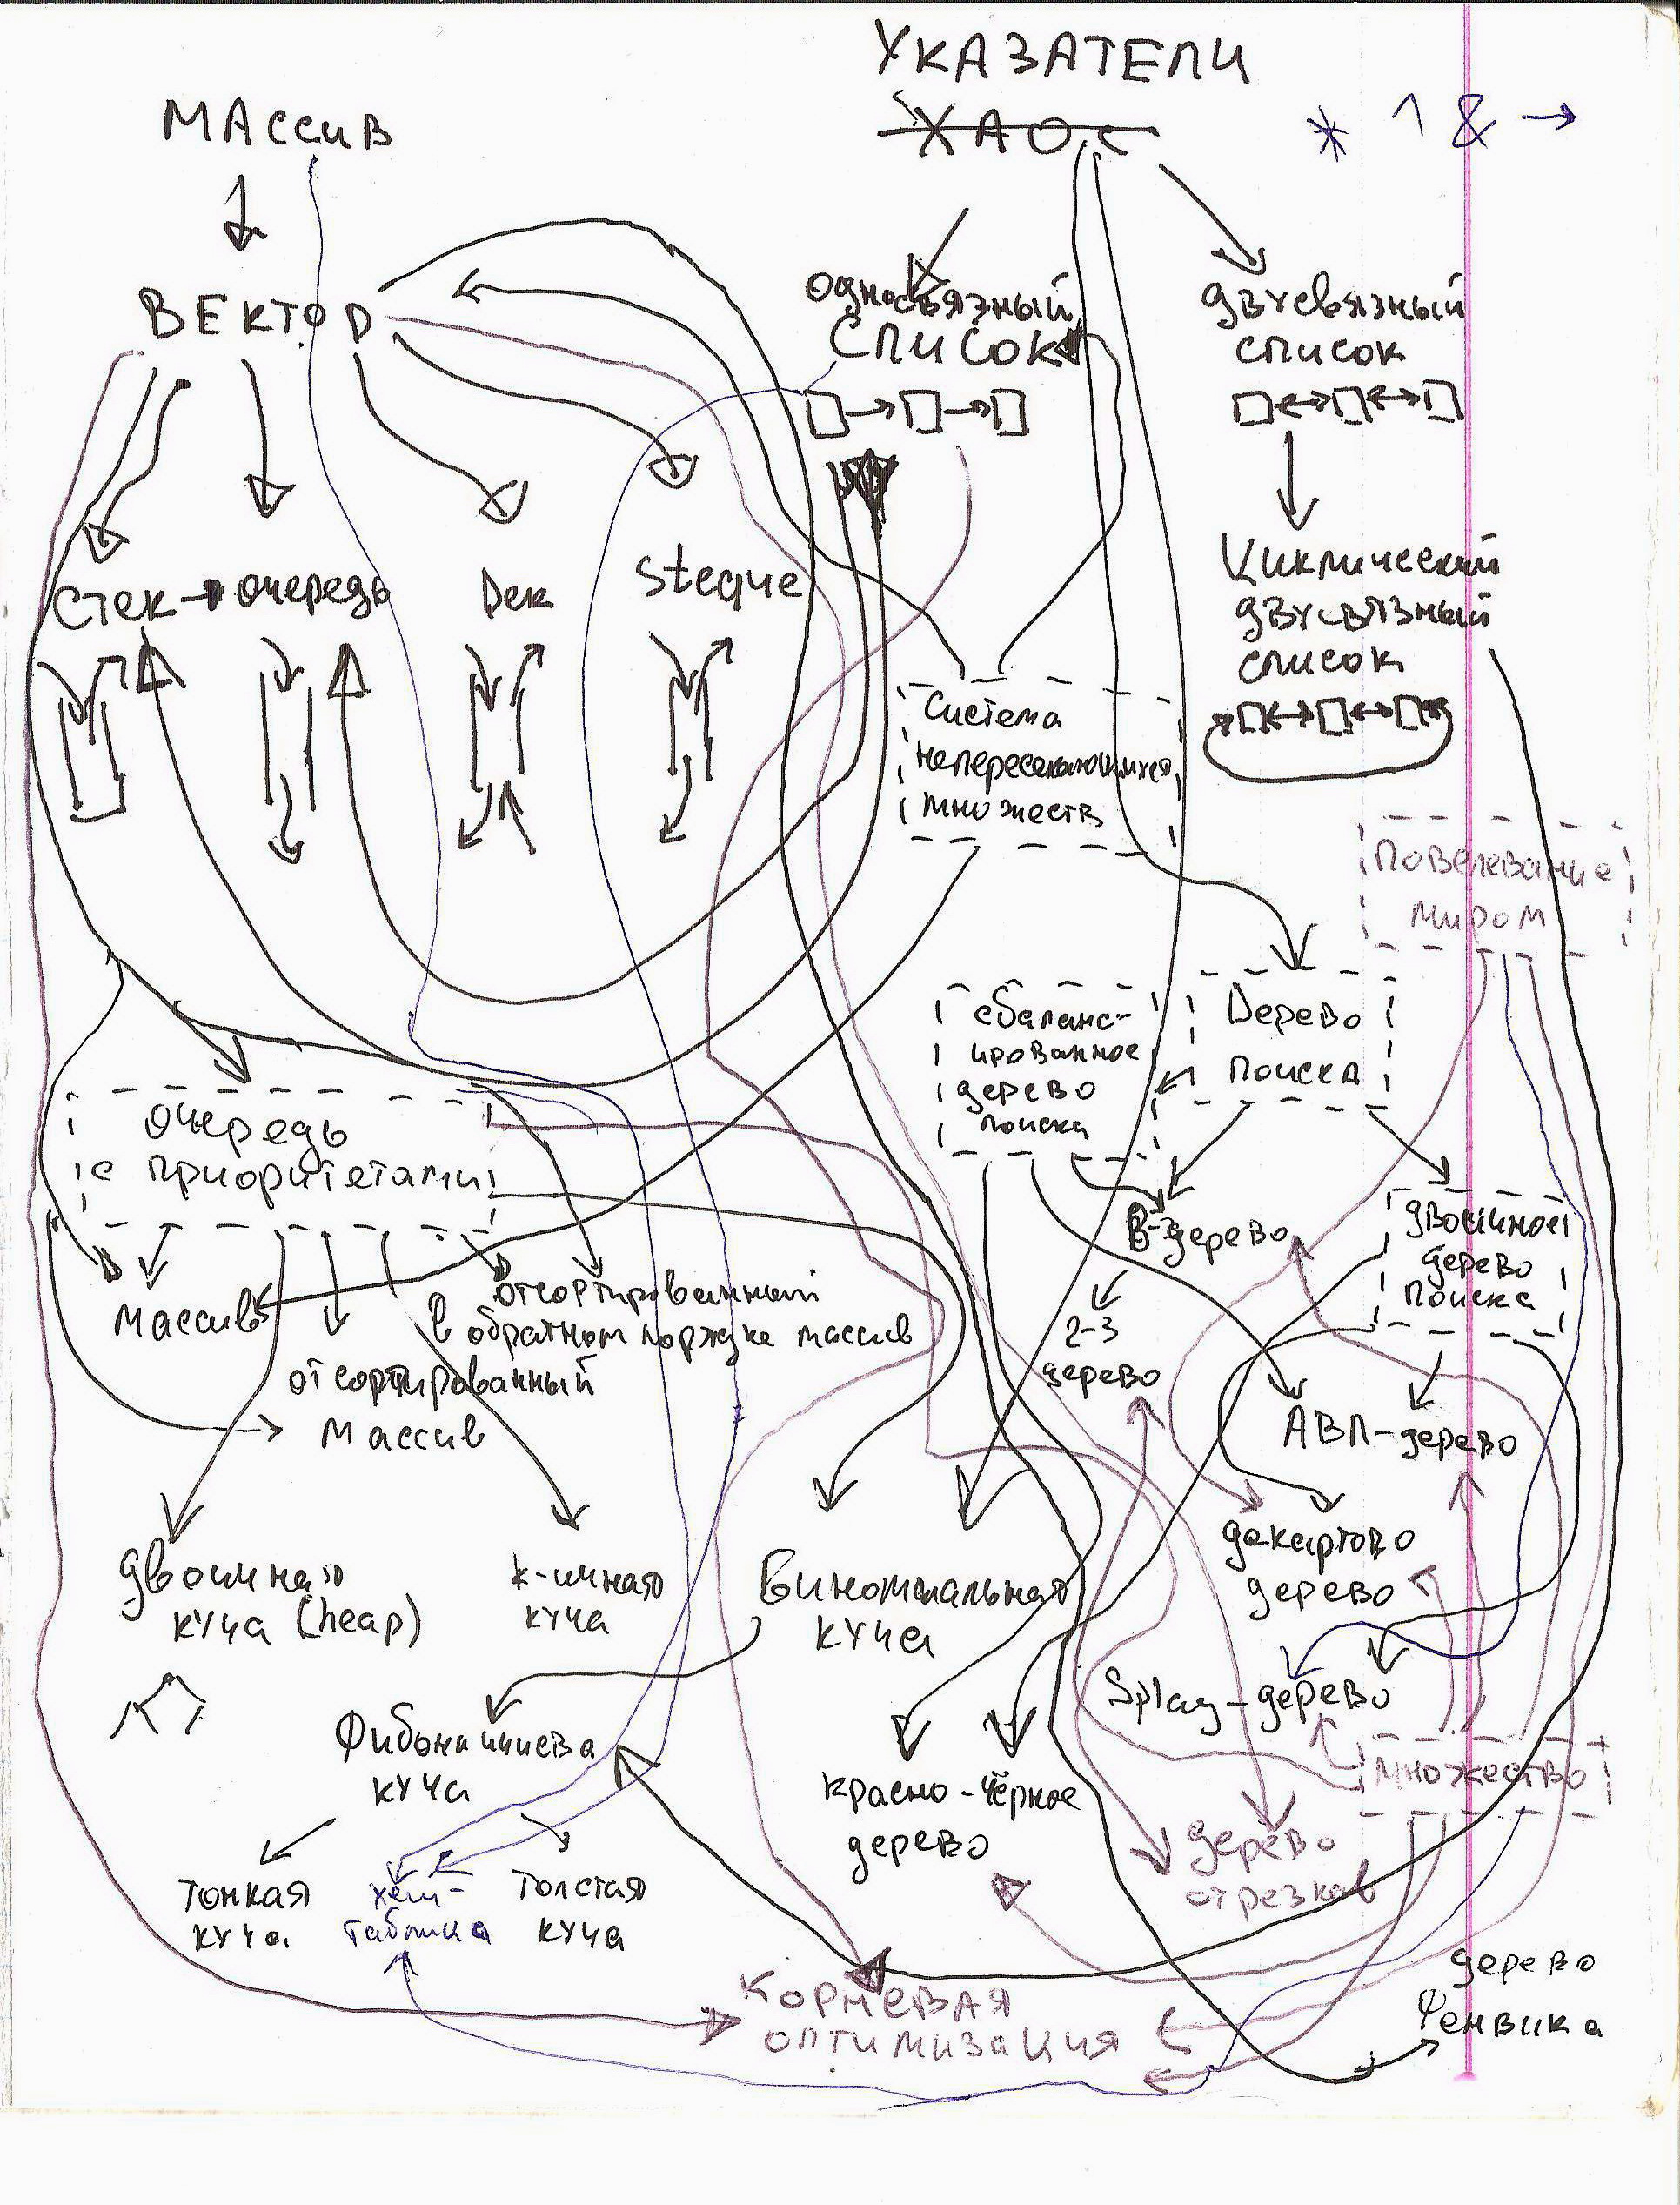 УКАЗАТЕЛИ
МАССИВ
ХАОС
* ^ & →
ВЕКТОР
односвязный
список
двусвязный
список
Стек → очередь
Дек
Steque
Циклический
двусвязный
список
Система
непересекающихся
множеств
Повелевание
миром
сбаланс-
ированное
дерево
поиска
Дерево
поиска
очередь
с приоритетами
B-дерево
двоичное
дерево
поиска
массив
отсортированный
в обратном порядке массив
2-3
дерево
отсортированный
массив
АВЛ-дерево
двоичная
куча (heap)
k-ичная
куча
Биномиальная
куча
декартово
дерево
Splay-дерево
Фибоначчиева
куча
множество
красно-чёрное
дерево
дерево
отрезков
тонкая
куча
хеш-
таблица
толстая
куча
корневая
оптимизация
дерево
Фенвика